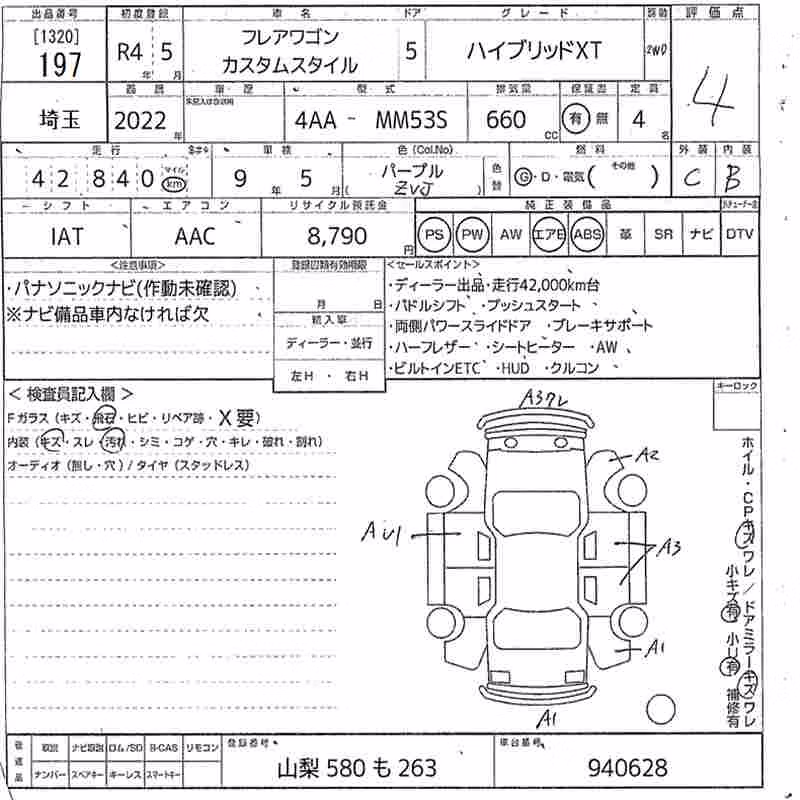 出品番号 初度登録 車名 ドア グレード 駆動 評価点
[1320]
197
R4 5
年 月
フレアワゴン
カスタムスタイル
5
ハイブリッドXT
2WD
4
車歴 型式 排気量 保証書 定員
未記入は自家用
埼玉 2022 年 4AA - MM53S 660 CC 有 無 4 名
走行 車検 色(Col.No) 燃料 外装 内装
42840 マイル km 9 年 5 月 パープル
( ZVJ )
色替
G・D・電気( その他 )
C B
シフト エアコン リサイクル預託金 純正装備品
IAT AAC 8,790 円 PS PW AW エアB ABS 革 SR ナビ DTV
<注意事項>
・パナソニックナビ(作動未確認)
※ナビ備品車内なければ欠
登録書類有効期限
月 日
輸入車
ディーラー・並行
左H ・ 右H
<セールスポイント>
・ディーラー出品・走行42,000km台
・パドルシフト ・プッシュスタート
・両側パワースライドドア ・ブレーキサポート
・ハーフレザー ・シートヒーター ・AW
・ビルトインETC ・HUD ・クルコン
キーロック
< 検査員記入欄 >
Fガラス (キズ・飛石・ヒビ・リペア跡・X要)
内装 (キズ・スレ・汚れ・シミ・コゲ・穴・キレ・破れ・割れ)
オーディオ (無し・穴) / タイヤ (スタッドレス)
A3ワレ
A2
AU1
A3
A1
A1
ホイル・CPキズワレ / ドアミラーキズワレ
小キズ有 小U有 補修有
後返品
取説 ナビ取説 ロム/SD B-CAS リモコン
ナンバー スペアキー キーレス スマートキー
登録番号
山梨 580 も 263
車台番号
940628